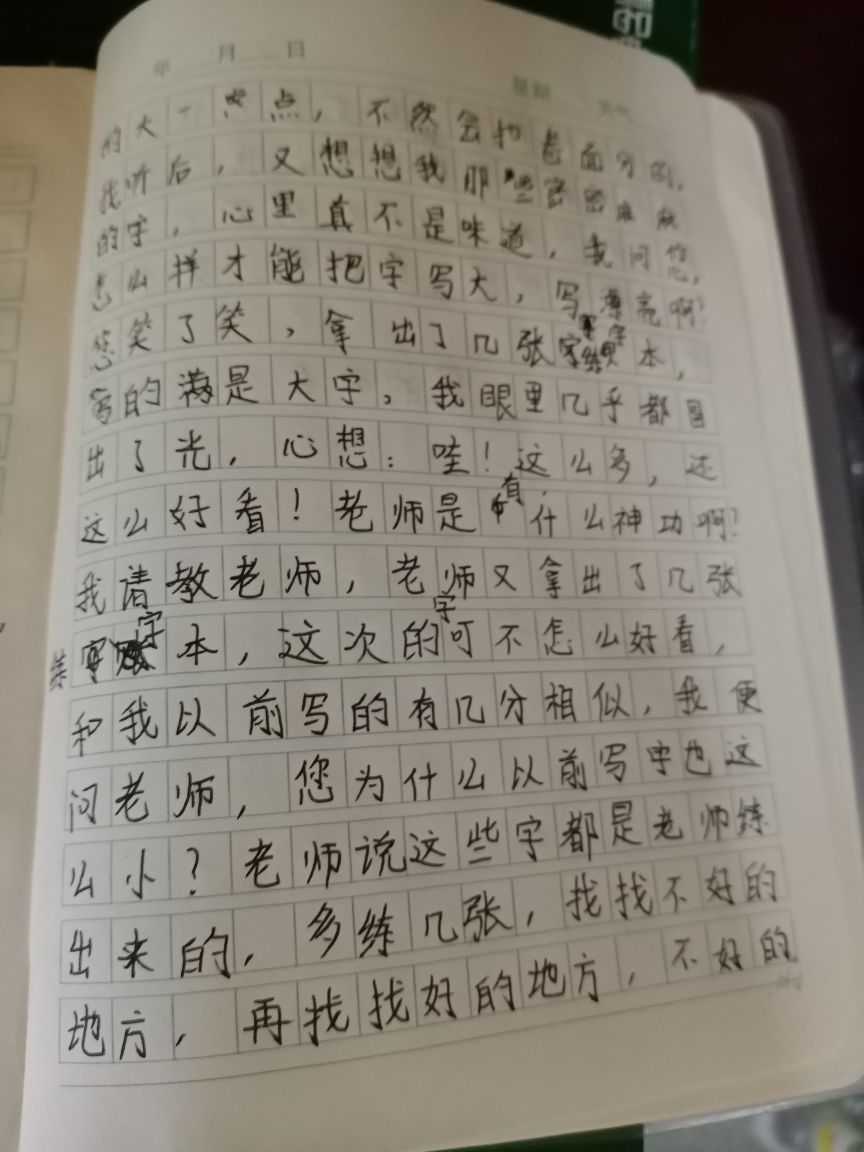 年 月 日
星期 天气
的大一点点，不然会扣卷面分的，
我听后，又想想我那些密密麻麻
的字，心里真不是味道，我问您，
怎么样才能把字写大，写漂亮啊？
您笑了笑，拿出了几张练字本，
写的满是大字，我眼里几乎都冒
出了光，心想：哇！这么多，还
这么好看！老师是有什么神功啊？
我请教老师，老师又拿出了几张
练字本，这次的字可不怎么好看，
和我以前写的有几分相似，我便
问老师，您为什么以前写字也这
么小？老师说这些字都是老师练
出来的，多练几张，找找不好的
地方，再找找好的地方，不好的